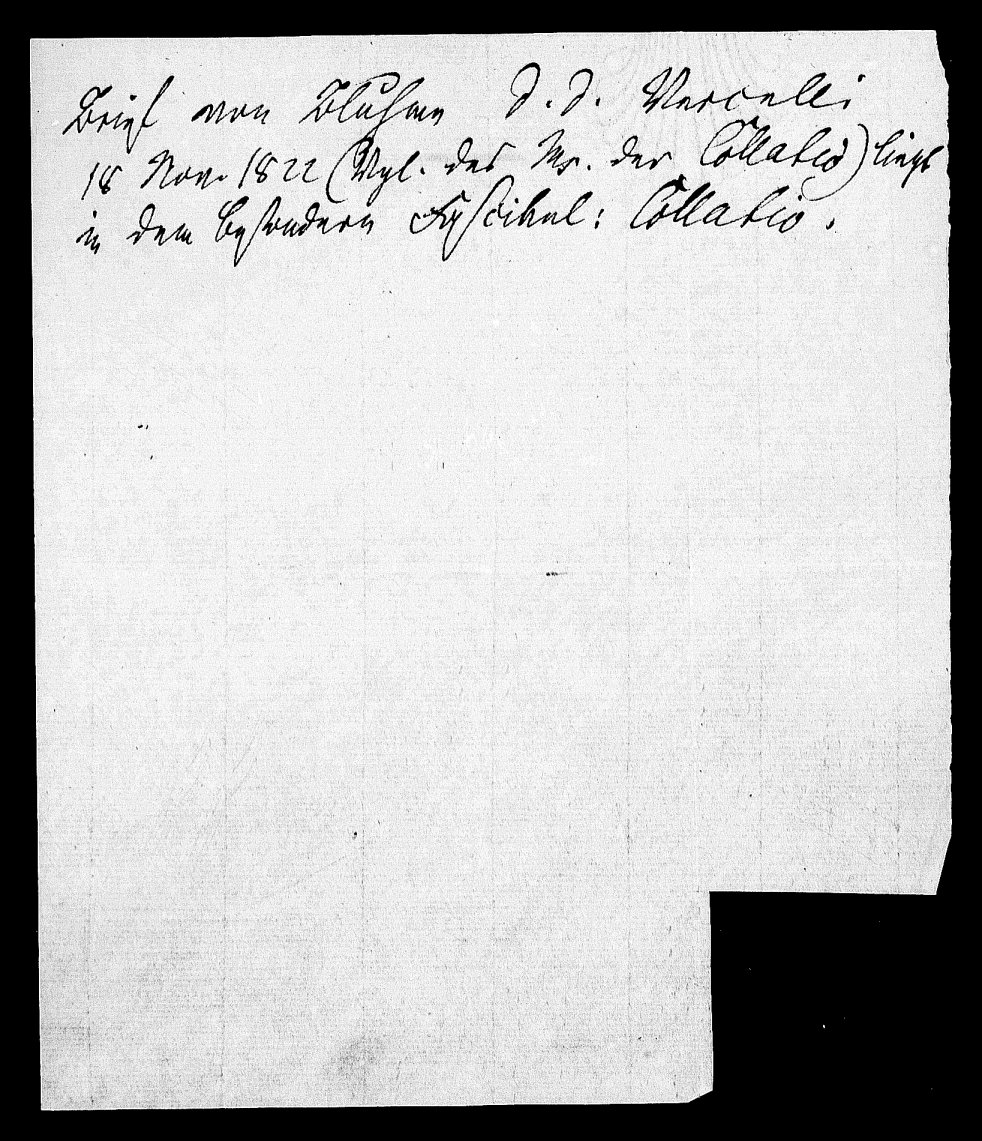 Brief von Bluhme d. d. Vercelli
18 Nov. 1822 (Vgl. des Ms. der Collatio) liegt
in dem besondern Fascikel: Collatio.